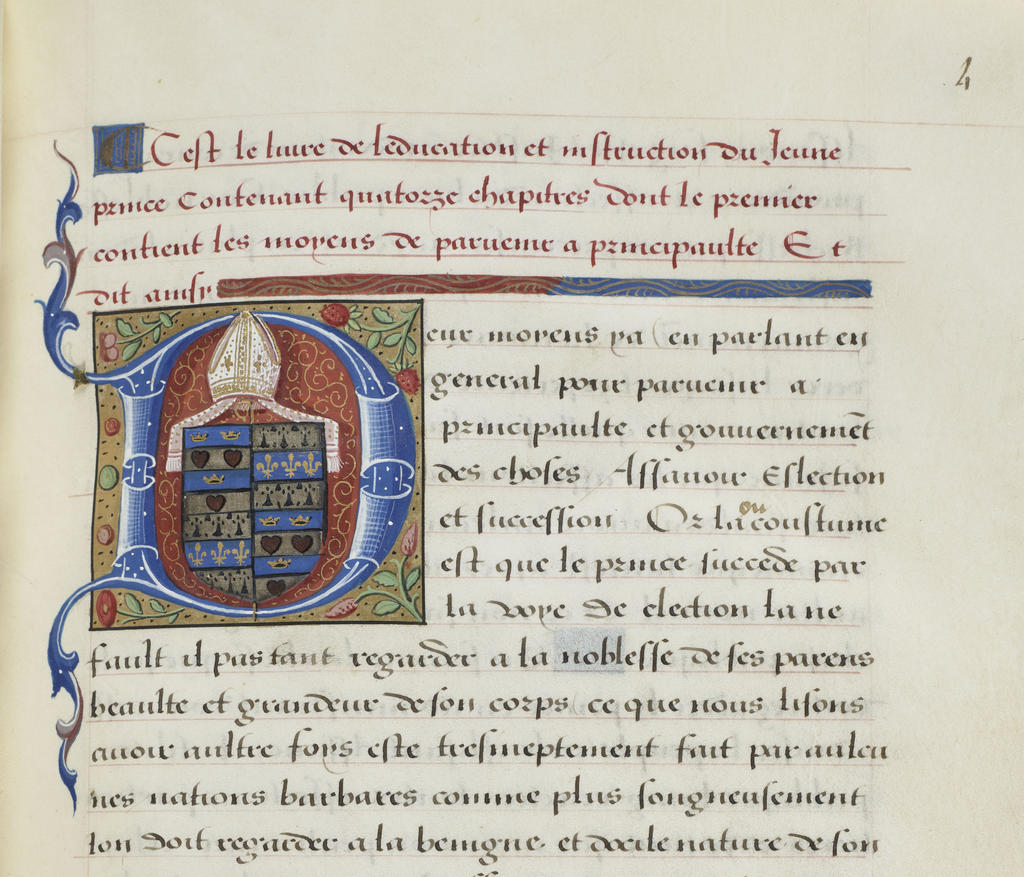 4
C est le liure de leducation et instruction du Jeune
prince Contenant quatorze chapitres dont le premier
contient les moyens de paruenir a principaulte Et
dit ainsi
Deux moyens ya (en parlant en
general pour paruenir a
principaulte et gouuernemēt
des choses Assauoir Eslection
et succession Or la ou coustume
est que le prince succede par
la voye de election la ne
fault il pas tant regarder a la noblesse de ses parens
beaulte et grandeur de son corps (ce que nous lisons
auoir aultre foys este tresineptement fait par aulcu
nes nations barbares comme plus songneusement
lon doit regarder a la benigne et docile nature de son